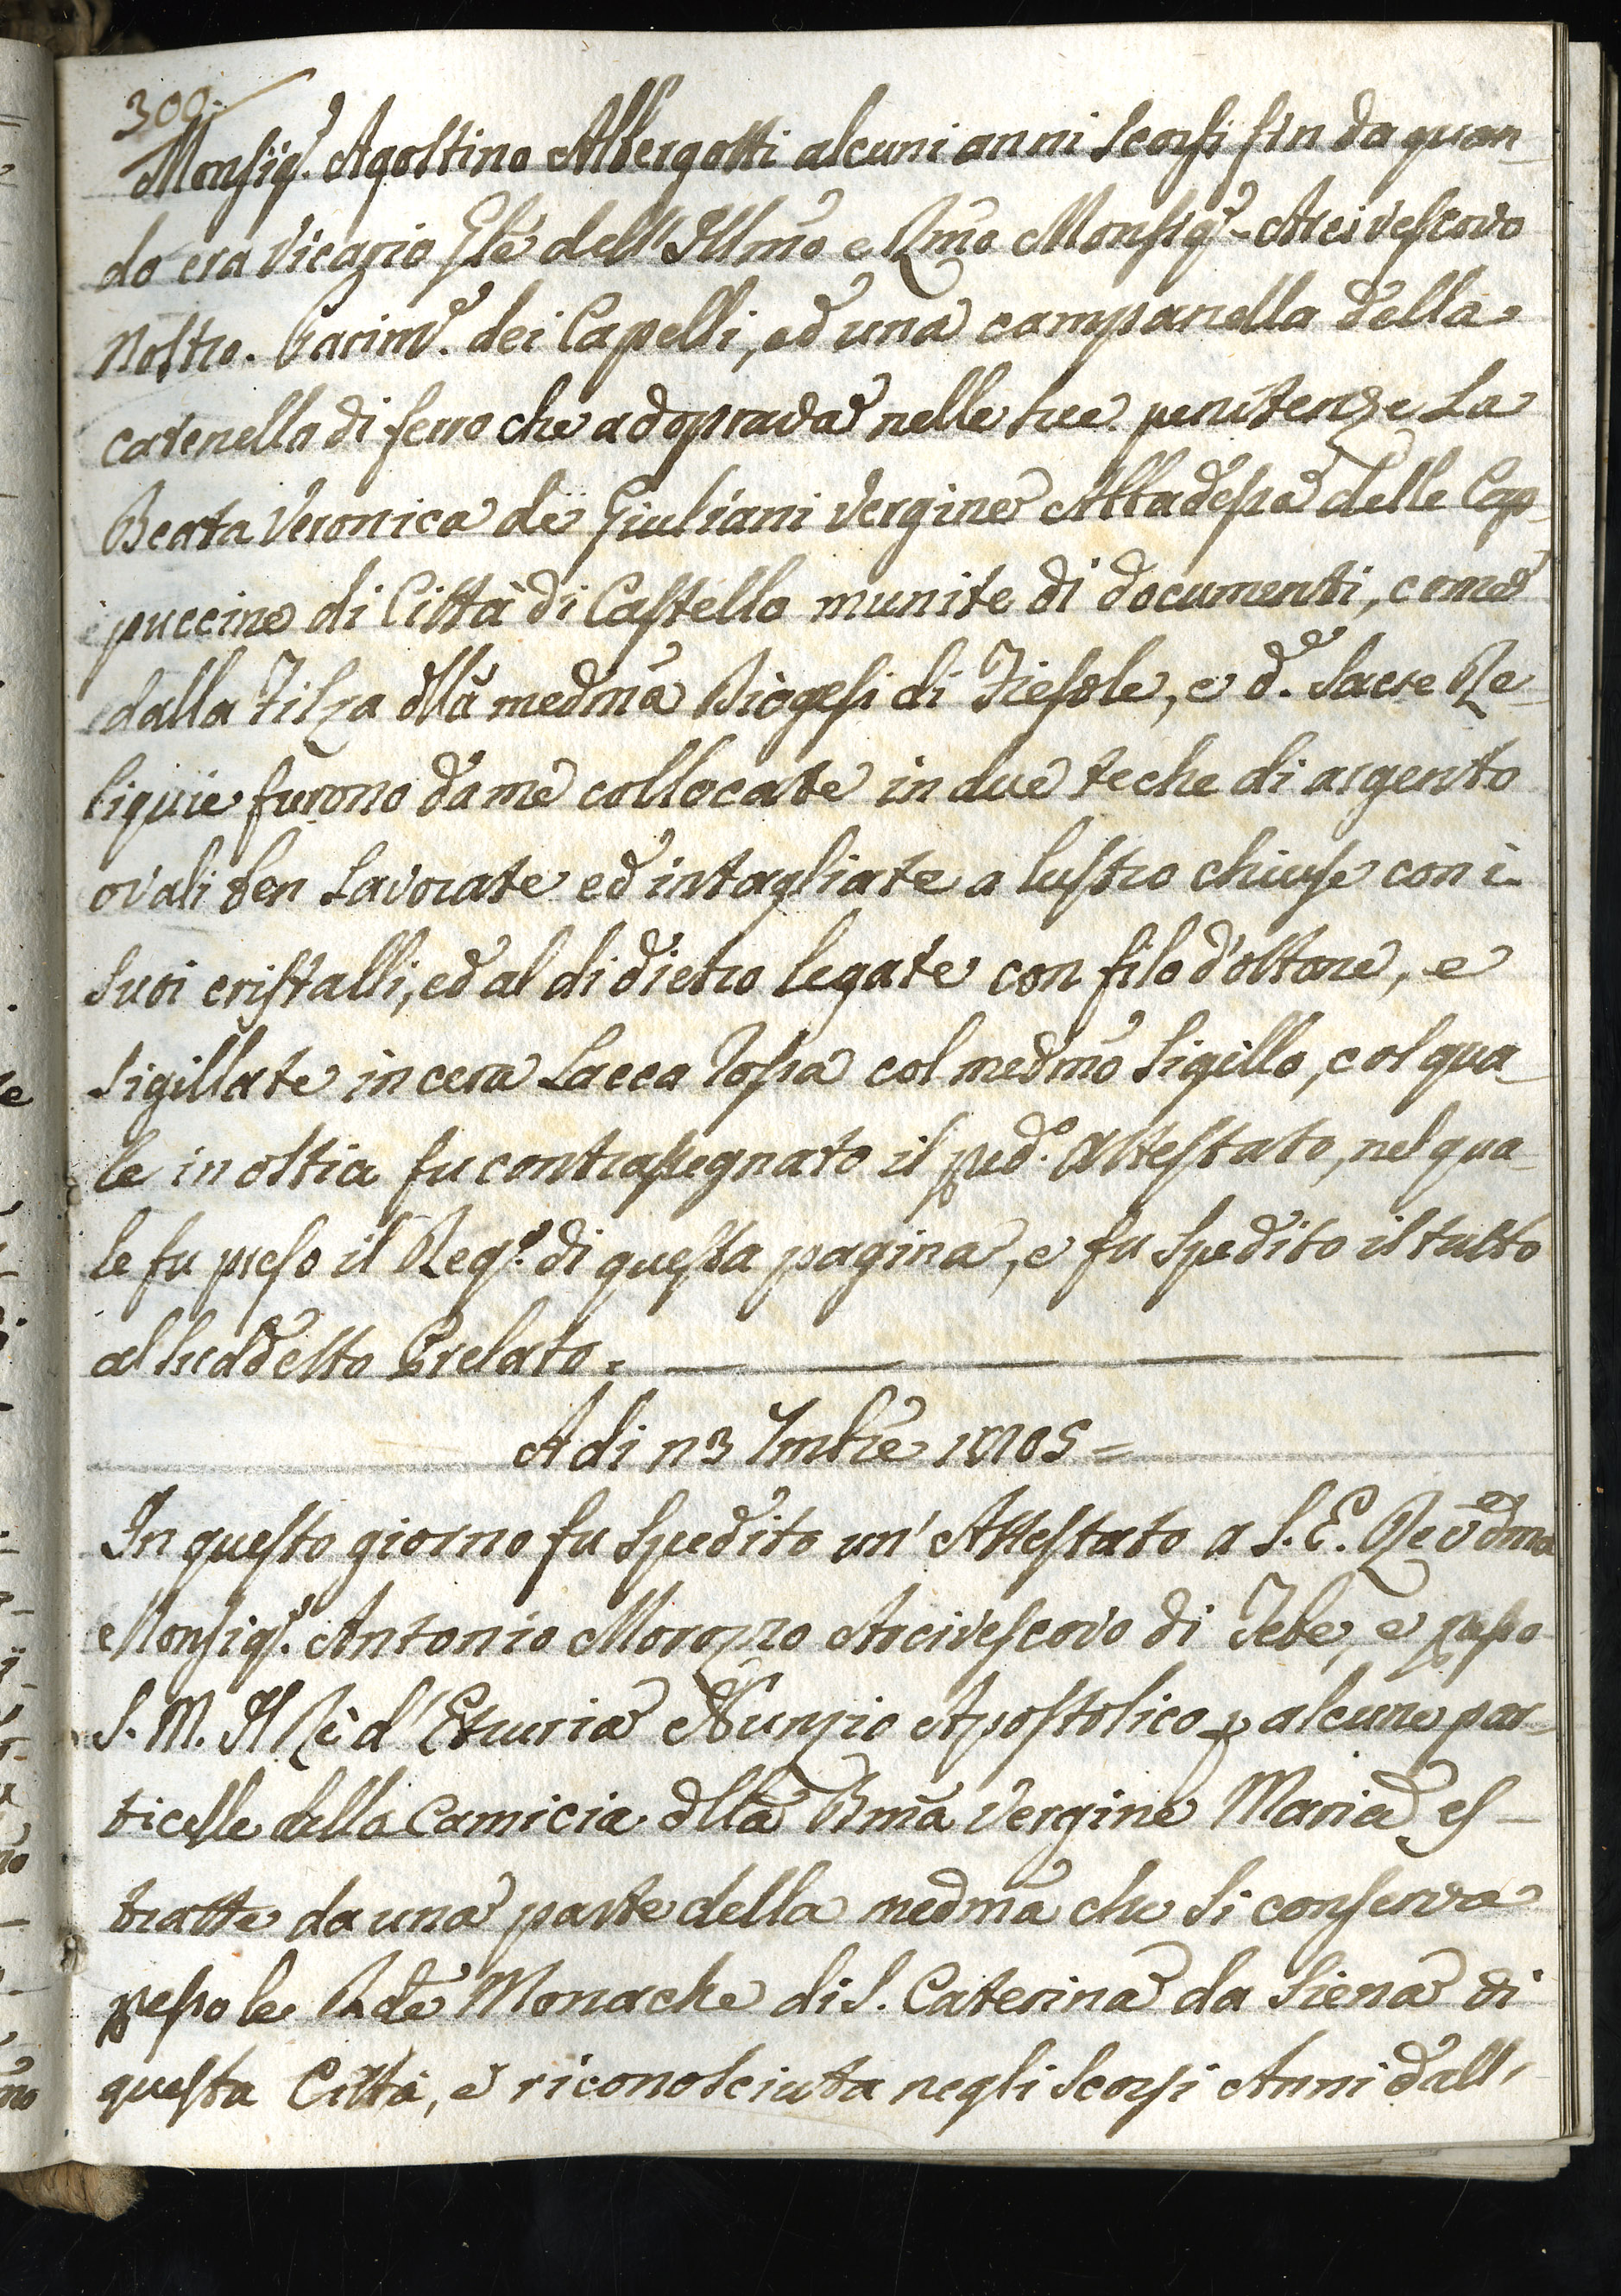 300:
Monsig.r Agostino Albergotti alcuni anni scorsi fin da quan-
do era Vicario Gle dell'Illmo e Rmo Monsig.r Arcivescovo
Nostro. Parim.e dei Capelli, ed una campanella della
catenella di ferro che adoprava nelle sue penitenze La
Beata Veronica de Giuliani Vergine Abbadessa delle Cap-
puccine di Città di Castello munite di documenti, come
dalla Filza dlla medma Diogesi di Fiesole, e d.e Sacre Re-
liquie furono da me collocate in due teche di argento
ovali ben Lavorate ed intagliate a lustro chiuse con i
suoi cristalli, ed al di dietro legate con filo d'ottone, e
Sigillate in cera Lacca Rossa col medmo Sigillo, col qua-
le in ostia fu contrassegnato il pred.o Attestato, nel qua-
le fu preso il Reg.o di questa pagina, e fu spedito il tutto
al suddetto Prelato.
A di 13 7mbre 1805=
In questo giorno fu spedito un' Attestato a S. E. Revdma
Monsig.r Antonio Morozzo Arcivescovo di Tebe, e presso
S. M. Il Rè d'Etruria Nunzio Apostolico p alcune par-
ticelle della Camicia dlla Bma Vergine Maria es-
tratte da una parte della medma che si conserva
presso le Rde Monache di S. Caterina da Siena di
questa Città, e riconosciuta negli scorsi Anni dall'